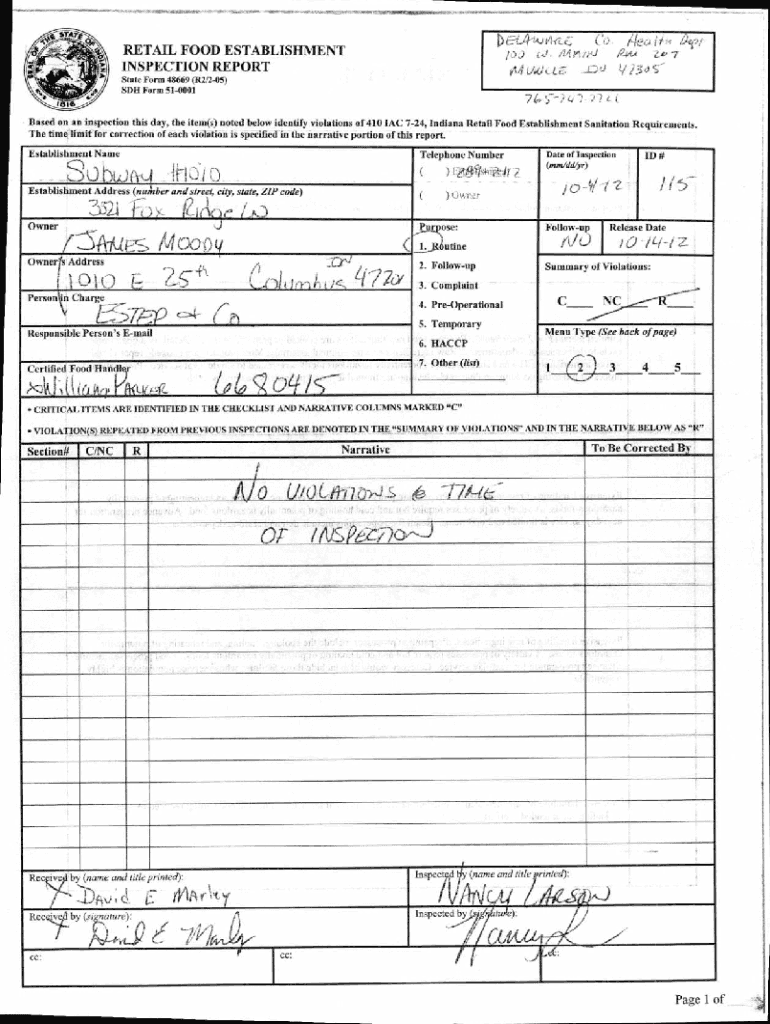 RETAIL FOOD ESTABLISHMENT
INSPECTION REPORT
State Form 48669 (R2/2-05)
SDH Form 51-0001
DELAWARE Co. Health Dept
100 W. MAIN RM 207
MUNCIE IN 47305
765-747-7721
Based on an inspection this day, the item(s) noted below identify violations of 410 IAC 7-24, Indiana Retail Food Establishment Sanitation Requirements.
The time limit for correction of each violation is specified in the narrative portion of this report.
Establishment Name
SUBWAY #1010
Telephone Number
( )
( ) Owner
Date of Inspection
(mm/dd/yr)
10-4-12
ID #
115
Establishment Address (number and street, city, state, ZIP code)
3521 Fox Ridge LN
Owner
JAMES MOODY
Purpose:
1. Routine
2. Follow-up
3. Complaint
4. Pre-Operational
5. Temporary
6. HACCP
7. Other (list)
Follow-up
NO
Release Date
10-14-12
Owner's Address
1010 E 25th Columbus IN 47201
Summary of Violations:
C NC R
Person in Charge
ESTEP & Co
Responsible Person's E-mail
Menu Type (See back of page)
1 2 3 4 5
Certified Food Handler
William Parker 6680415
• CRITICAL ITEMS ARE IDENTIFIED IN THE CHECKLIST AND NARRATIVE COLUMNS MARKED "C"
• VIOLATION(S) REPEATED FROM PREVIOUS INSPECTIONS ARE DENOTED IN THE "SUMMARY OF VIOLATIONS" AND IN THE NARRATIVE BELOW AS "R"
Section# C/NC R Narrative To Be Corrected By
NO VIOLATIONS @ TIME
OF INSPECTION
Received by (name and title printed):
X DAVID E MARLEY
Inspected by (name and title printed):
NANCY LARSON
Received by (signature):
X David E Marley
Inspected by (signature):
cc:
cc:
cc:
Page 1 of